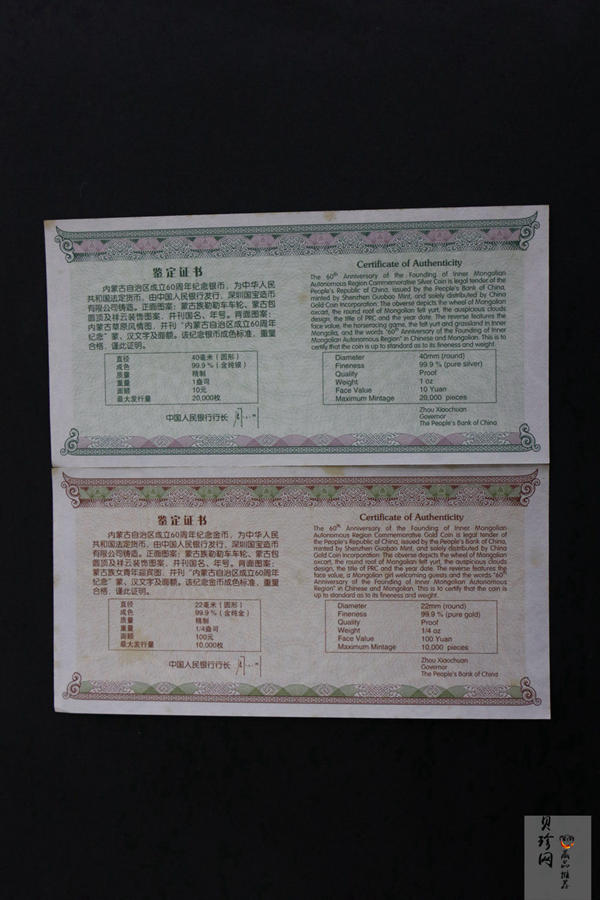 鉴定证书
内蒙古自治区成立60周年纪念银币，为中华人民
共和国法定货币，由中国人民银行发行，深圳国宝造币
有限公司铸造。正面图案：蒙古族勒勒车车轮、蒙古包
圆顶及祥云装饰图案，并刊国名、年号。背面图案：
内蒙古草原风情图，并刊“内蒙古自治区成立60周年
纪念”蒙、汉文字及面额。该纪念银币成色标准，重量
合格，谨此证明。
直径 40毫米（圆形）
成色 99.9％（含纯银）
质量 精制
重量 1盎司
面额 10元
最大发行量 20,000枚
中国人民银行行长
Certificate of Authenticity
The 60th Anniversary of the Founding of Inner Mongolian
Autonomous Region Commemorative Silver Coin is legal tender of the
People's Republic of China, issued by the People's Bank of China,
minted by Shenzhen Guobao Mint, and solely distributed by China
Gold Coin Incorporation. The obverse depicts the wheel of Mongolian
oxcart, the round roof of Mongolian felt yurt, the auspicious clouds
design, the title of PRC and the year date. The reverse features the
face value, the horseracing game, the felt yurt and grassland in Inner
Mongolia, and the words "60th Anniversary of the Founding of Inner
Mongolian Autonomous Region" in Chinese and Mongolian. This is to
certify that the coin is up to standard as to its fineness and weight.
Diameter 40mm (round)
Fineness 99.9 % (pure silver)
Quality Proof
Weight 1 oz
Face Value 10 Yuan
Maximum Mintage 20,000 pieces
Zhou Xiaochuan
Governor
The People's Bank of China
鉴定证书
内蒙古自治区成立60周年纪念金币，为中华人民
共和国法定货币，由中国人民银行发行，深圳国宝造币
有限公司铸造。正面图案：蒙古族勒勒车车轮、蒙古包
圆顶及祥云装饰图案，并刊国名、年号。背面图案：
蒙古族女青年迎宾图，并刊“内蒙古自治区成立60周年
纪念”蒙、汉文字及面额。该纪念金币成色标准，重量
合格，谨此证明。
直径 22毫米（圆形）
成色 99.9％（含纯金）
质量 精制
重量 1/4盎司
面额 100元
最大发行量 10,000枚
中国人民银行行长
Certificate of Authenticity
The 60th Anniversary of the Founding of Inner Mongolian
Autonomous Region Commemorative Gold Coin is legal tender of
the People's Republic of China, issued by the People's Bank of China,
minted by Shenzhen Guobao Mint, and solely distributed by China
Gold Coin Incorporation. The obverse depicts the wheel of Mongolian
oxcart, the round roof of Mongolian felt yurt, the auspicious clouds
design, the title of PRC and the year date. The reverse features the
face value, a Mongolian girl welcoming guests and the words "60th
Anniversary of the Founding of Inner Mongolian Autonomous
Region" in Chinese and Mongolian. This is to certify that the coin is
up to standard as to its fineness and weight.
Diameter 22mm (round)
Fineness 99.9 % (pure gold)
Quality Proof
Weight 1/4 oz
Face Value 100 Yuan
Maximum Mintage 10,000 pieces
Zhou Xiaochuan
Governor
The People's Bank of China
贝珍网
藏品推荐